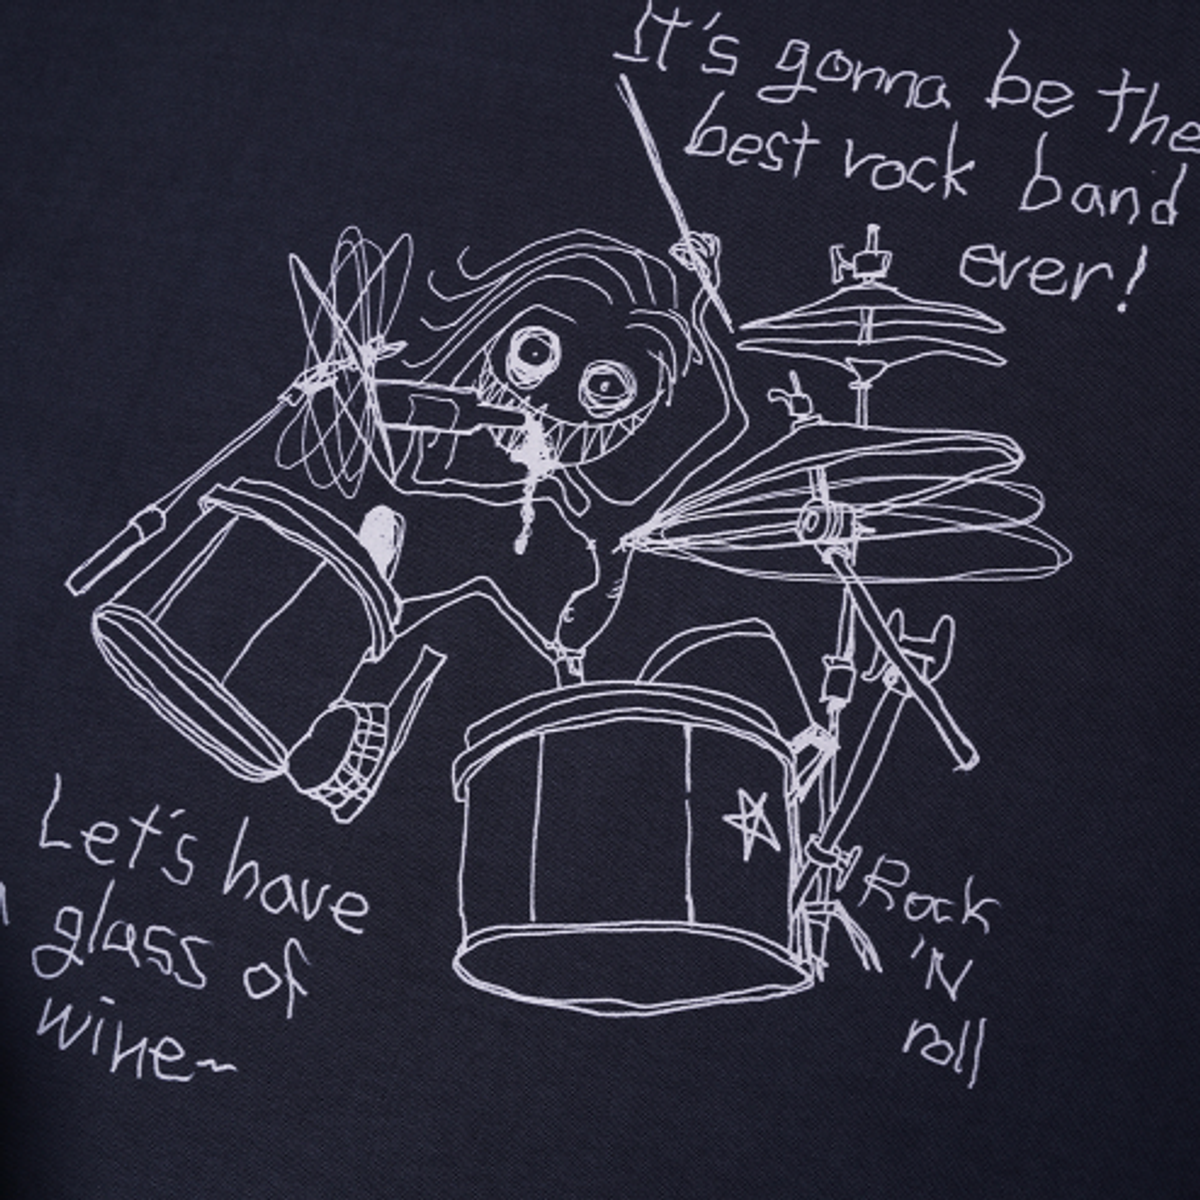 It's gonna be the
best rock band
ever!
Let's have
glass of
wine~
Rock
'N
roll